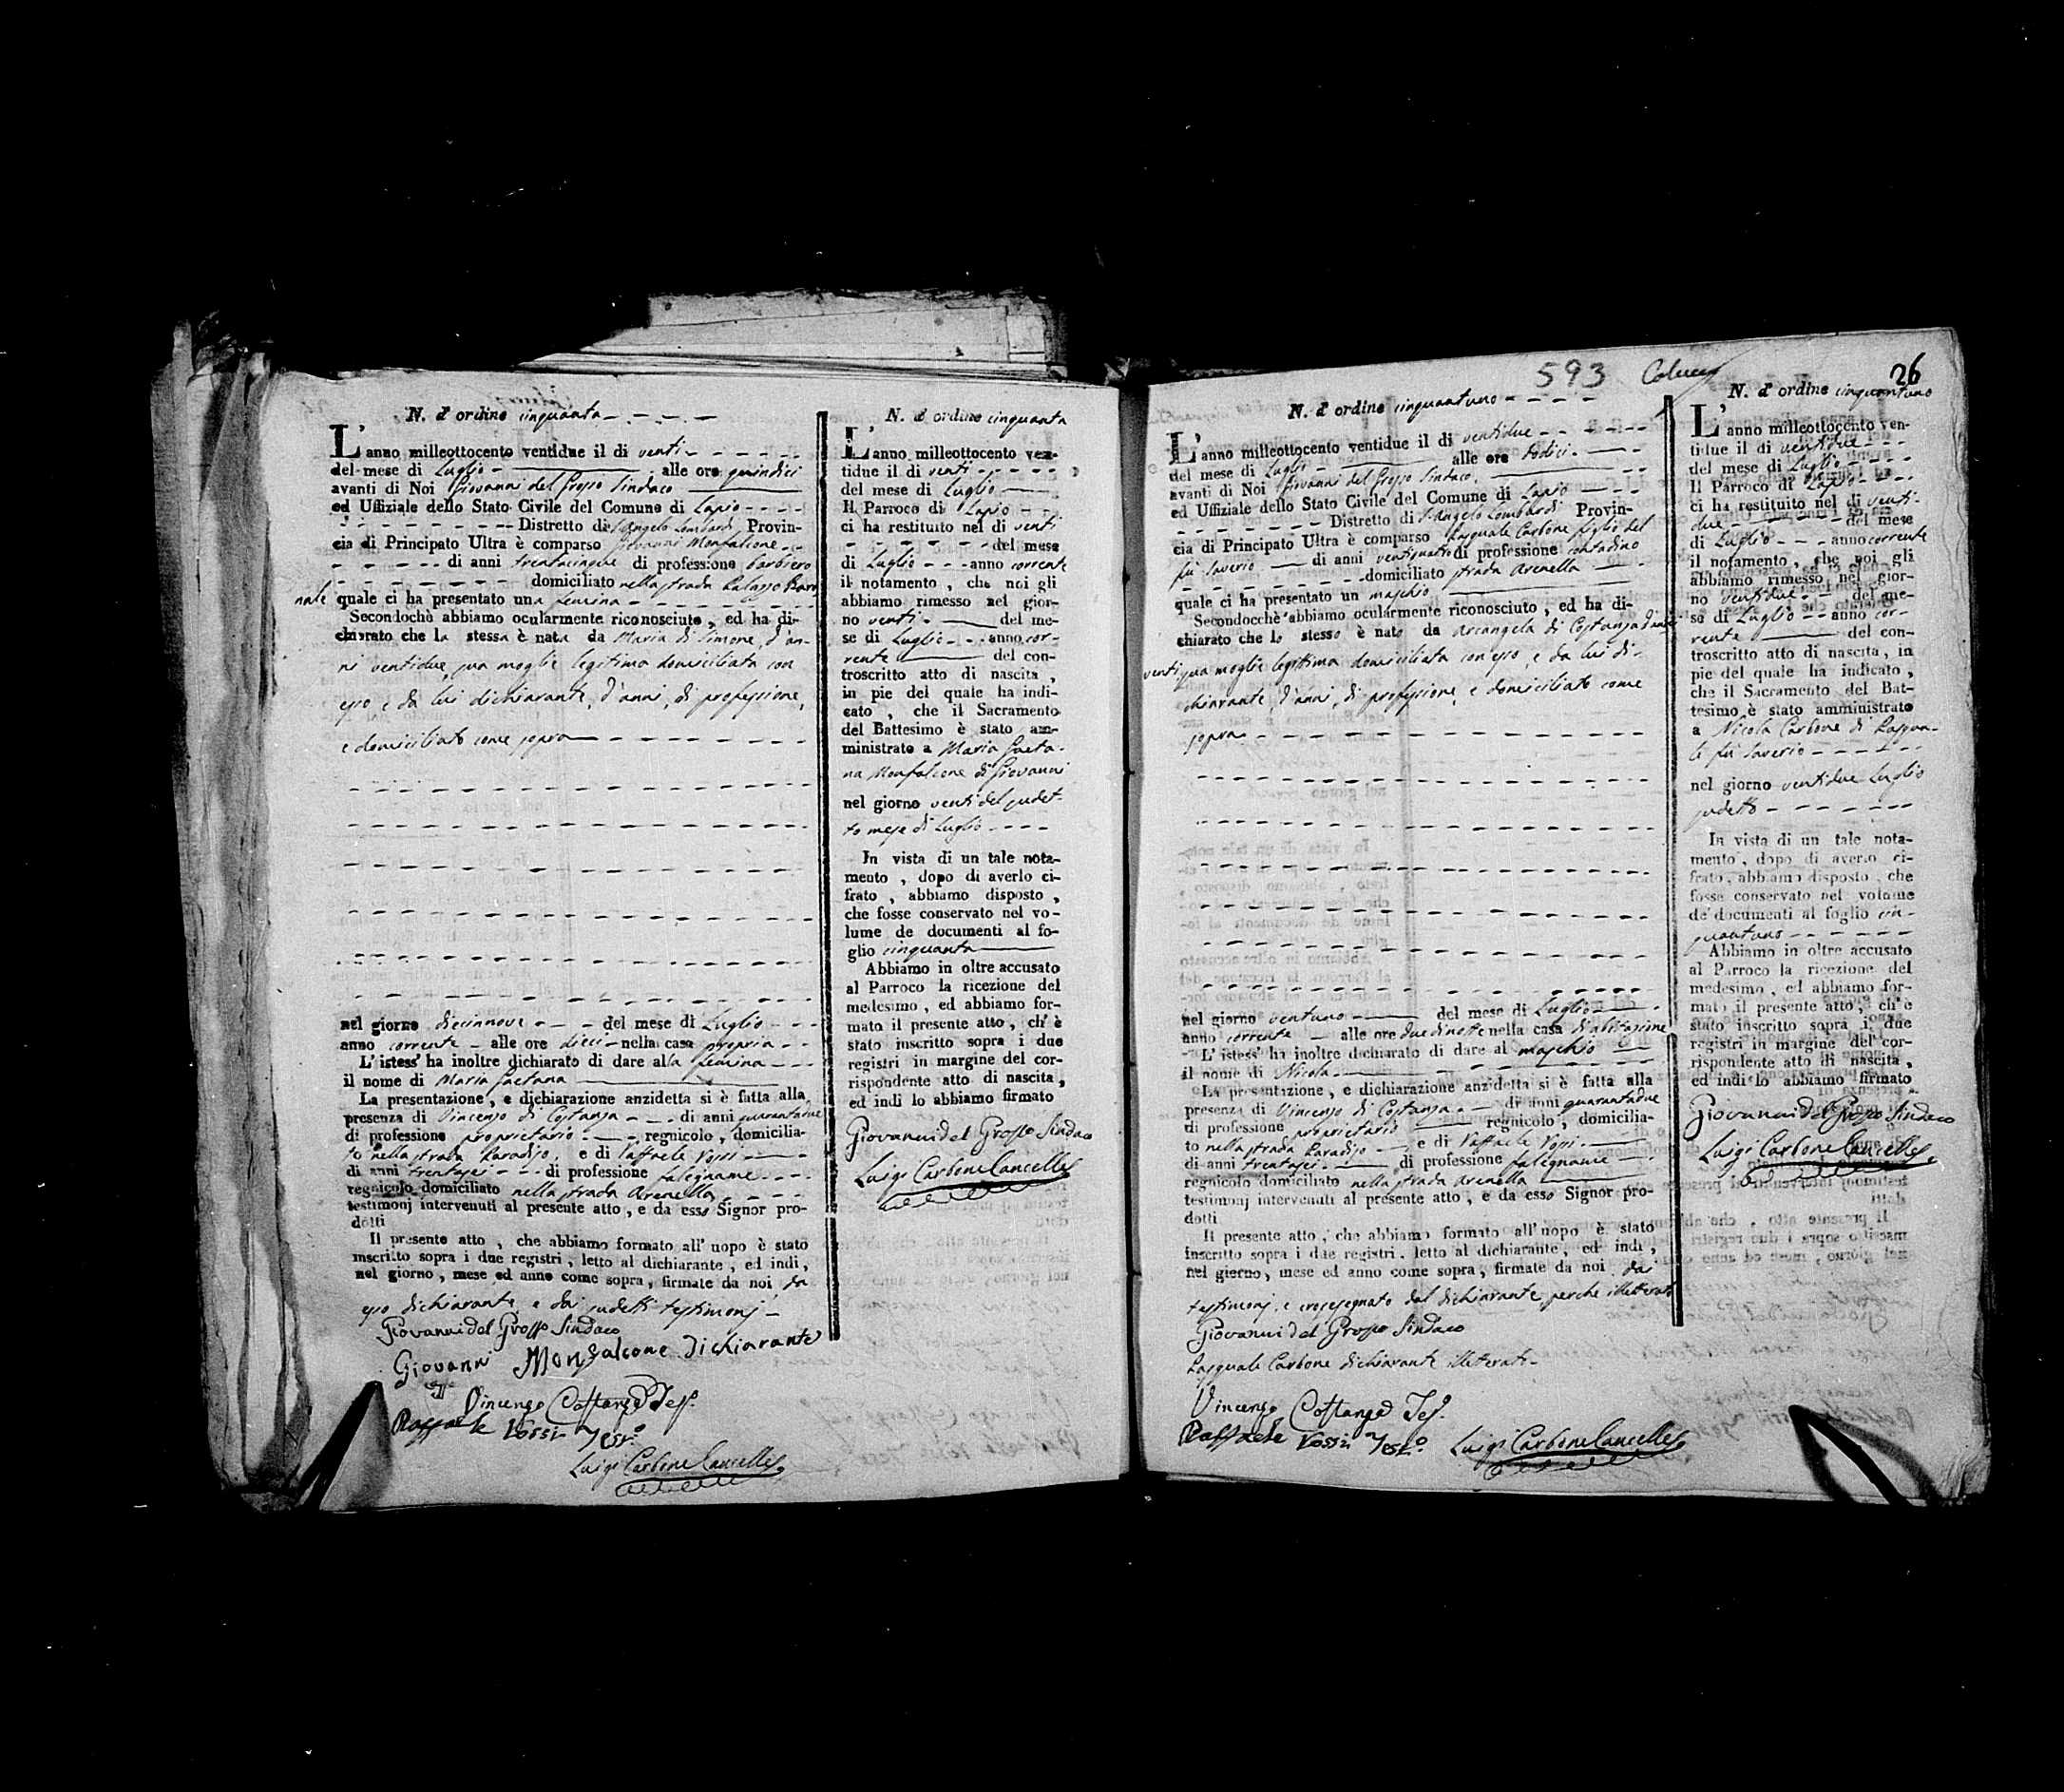 N. d'ordine cinquanta
L'anno milleottocento ventidue il di venti
del mese di Luglio alle ore quindici
avanti di Noi Giovanni del Grosso Sindaco
ed Uffiziale dello Stato Civile del Comune di Lapio
Distretto di S. Angelo Lombardi Provin-
cia di Principato Ultra è comparso Giovanni Monfalcone
di anni trentacinque di professione barbiero
domiciliato nella strada Palazzo Baro
nale quale ci ha presentato una femina
Secondochè abbiamo ocularmente riconosciuto, ed ha di-
chiarato che la stessa è nata da Maria di Simone d'an-
ni ventidue, sua moglie legitima domiciliata con
esso e da lui dichiarante, d'anni, di professione,
e domiciliato come sopra
nel giorno diecinnove del mese di Luglio
anno corrente alle ore dieci nella casa propria
L'istess' ha inoltre dichiarato di dare alla femina
il nome di Maria Gaetana
La presentazione, e dichiarazione anzidetta si è fatta alla
presenza di Vincenzo di Costanza di anni quarantadue
di professione proprietario regnicolo, domicilia-
to nella strada Paradiso, e di Raffaele Rossi
di anni trentasei di professione falegname
regnicolo domiciliato nella strada Arenella
testimonj intervenuti al presente atto, e da esso Signor pro-
dotti
Il presente atto, che abbiamo formato all'uopo è stato
inscritto sopra i due registri, letto al dichiarante, ed indi,
nel giorno, mese ed anno come sopra, firmate da noi da
esso dichiarante, e dai sudetti testimonj
Giovanni del Grosso Sindaco
Giovanni Monfalcone dichiarante
Vincenzo Costanza Tes.
Raffaele Rossi Test.o
Luigi Carbone Cancelle
N. d'ordine cinquanta
L'anno milleottocento ven-
tidue il di venti
del mese di Luglio
Il Parroco di Lapio
ci ha restituito nel di venti
del mese
di Luglio anno corrente
il notamento, che noi gli
abbiamo rimesso nel gior-
no venti del me-
se di Luglio anno cor-
rente del con-
troscritto atto di nascita,
in pie del quale ha indi-
cato, che il Sacramento
del Battesimo è stato am-
ministrato a Maria Gaeta-
na Monfalcone di Giovanni
nel giorno venti del sudet-
to mese di Luglio
In vista di un tale nota-
mento, dopo di averlo ci-
frato, abbiamo disposto,
che fosse conservato nel vo-
lume de documenti al fo-
glio cinquanta
Abbiamo in oltre accusato
al Parroco la ricezione del
medesimo, ed abbiamo for-
mato il presente atto, ch'è
stato inscritto sopra i due
registri in margine del cor-
rispondente atto di nascita,
ed indi lo abbiamo firmato
Giovanni del Grosso Sindaco
Luigi Carbone Cancelle
593
26
N. d'ordine cinquantuno
L'anno milleottocento ventidue il di ventidue
del mese di Luglio alle ore dodici
avanti di Noi Giovanni del Grosso Sindaco
ed Uffiziale dello Stato Civile del Comune di Lapio
Distretto di S. Angelo Lombardi Provin-
cia di Principato Ultra è comparso Pasquale Carbone figlio del
fù Saverio di anni ventiquatro di professione contadino
domiciliato strada Arenella
quale ci ha presentato un maschio
Secondocchè abbiamo ocularmente riconosciuto, ed ha di-
chiarato che lo stesso è nato da Arcangela di Costanza d'anni
venti, sua moglie legittima domiciliata con esso, e da lui di-
chiarante, d'anni, di professione, e domiciliato come
sopra
nel giorno ventuno del mese di Luglio
anno corrente alle ore due di notte nella casa d'abitazione
L'istess' ha inoltre dichiarato di dare al maschio
il nome di Nicola
La presentazione, e dichiarazione anzidetta si è fatta alla
presenza di Vincenzo di Costanza di anni quarantadue
di professione proprietario regnicolo, domicilia-
to nella strada Paradiso e di Raffaele Rossi
di anni trentasei di professione falegname
regnicolo domiciliato nella strada Arenella
testimonj intervenuti al presente atto, e da esso Signor pro-
dotti
Il presente atto, che abbiamo formato all'uopo è stato
inscritto sopra i due registri, letto al dichiarante, ed indi,
nel giorno, mese ed anno come sopra, firmate da noi dai
testimonj, e crocesegnato dal dichiarante perche illetterato
Giovanni del Grosso Sindaco
Pasquale Carbone dichiarante illetterato
Vincenzo Costanza Tes.
Raffaele Rossi Test.o
Luigi Carbone Cancelle
N. d'ordine cinquantuno
L'anno milleottocento ven-
tidue il di ventidue
del mese di Luglio
Il Parroco di Lapio
ci ha restituito nel di venti-
due del mese
di Luglio anno corrente
il notamento, che noi gli
abbiamo rimesso nel gior-
no ventidue del me-
se di Luglio anno cor-
rente del con-
troscritto atto di nascita, in
pie del quale ha indicato,
che il Sacramento del Bat-
tesimo è stato amministrato
a Nicola Carbone di Pasqua-
le fù Saverio
nel giorno ventidue Luglio
sudetto
In vista di un tale nota-
mento, dopo di averlo ci-
frato, abbiamo disposto, che
fosse conservato nel volume
de' documenti al foglio cin-
quantuno
Abbiamo in oltre accusato
al Parroco la ricezione del
medesimo, ed abbiamo for-
mato il presente atto, ch'è
stato inscritto sopra i due
registri in margine del cor-
rispondente atto di nascita,
ed indi lo abbiamo firmato
Giovanni del Grosso Sindaco
Luigi Carbone Cancelle